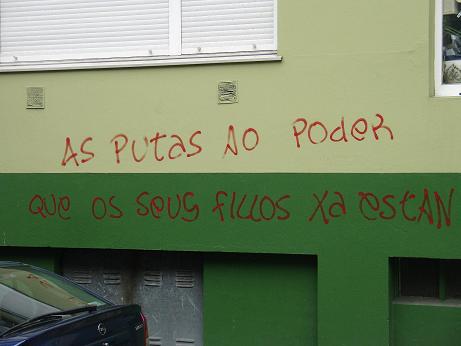 AS PUTAS AO PODER
QUE OS SEUS FILLOS XA ESTAN